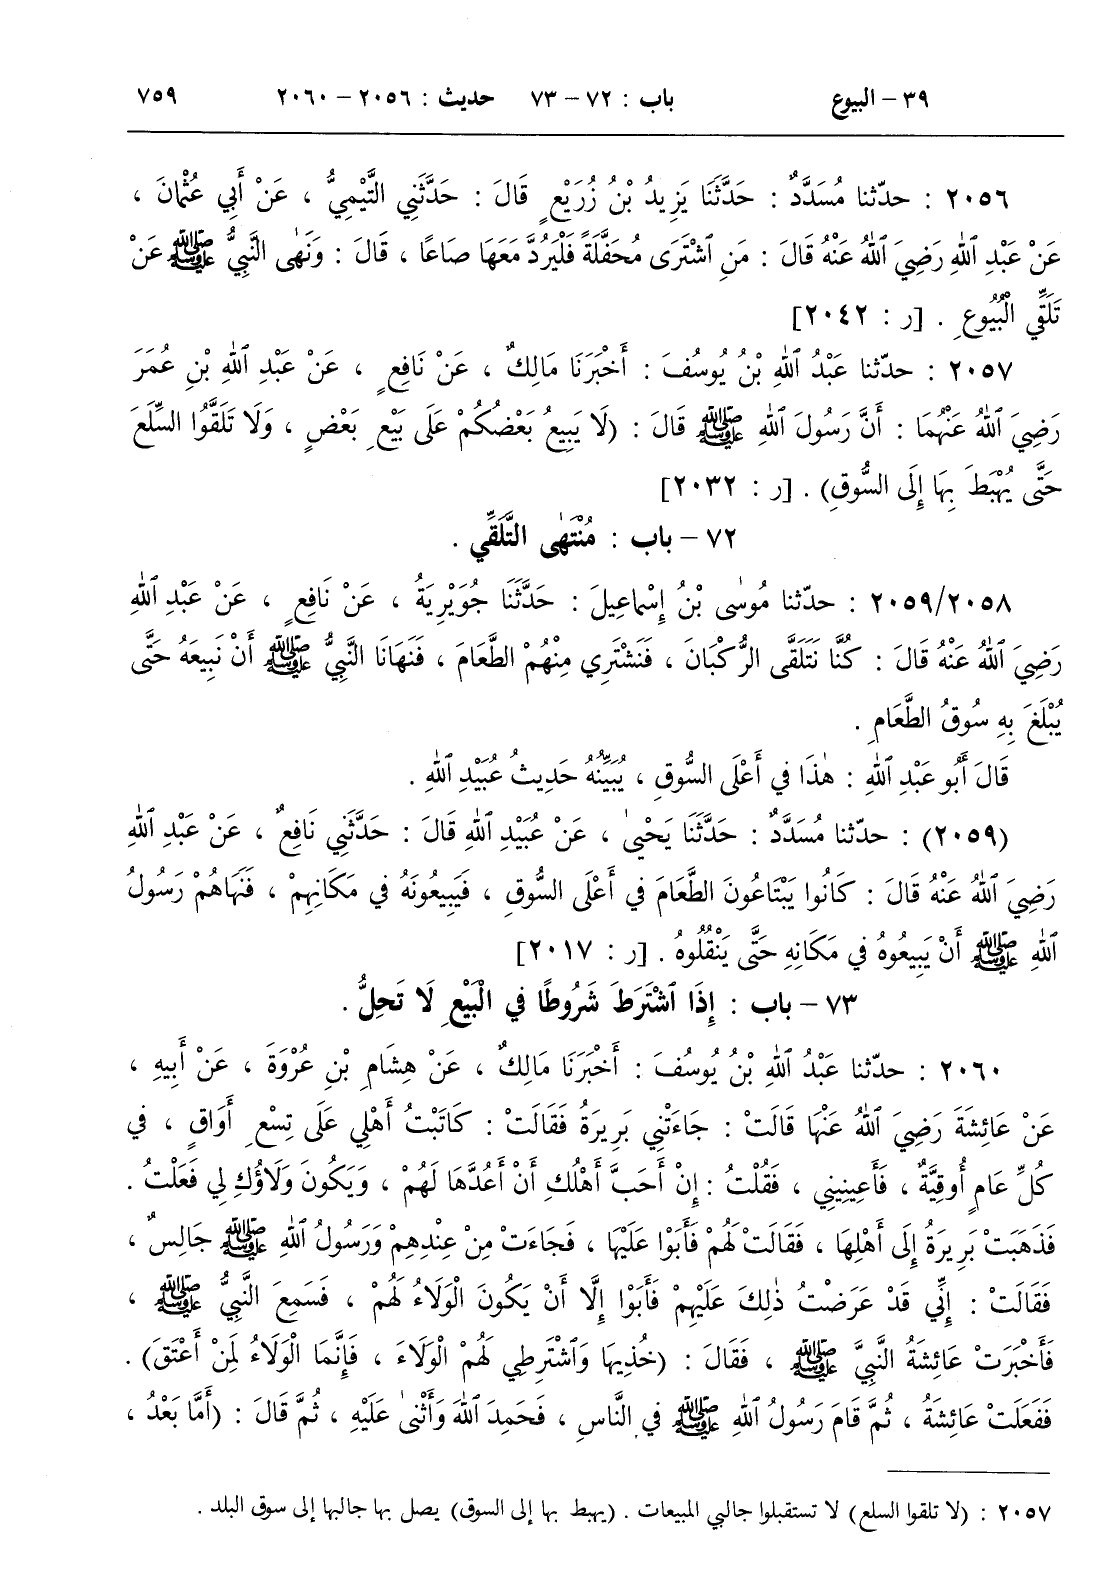 ٣٩ – البيوع باب : ٧٢ – ٧٣ حديث : ٢٠٥٦ – ٢٠٦٠ ٧٥٩
٢٠٥٦ : حدّثنا مُسَدَّدٌ : حَدَّثَنَا يَزِيدُ بْنُ زُرَيْعٍ قَالَ : حَدَّثَنِي التَّيْمِيُّ ، عَنْ أَبِي عُثْمَانَ ،
عَنْ عَبْدِ ٱللهِ رَضِيَ ٱللهُ عَنْهُ قَالَ : مَنِ ٱشْتَرَى مُحَفَّلَةً فَلْيَرُدَّ مَعَهَا صَاعًا ، قَالَ : وَنَهٰى النَّبِيُّ ﷺ عَنْ
تَلَقِّي الْبُيُوعِ . [ر : ٢٠٤٢]
٢٠٥٧ : حدّثنا عَبْدُ ٱللهِ بْنُ يُوسُفَ : أَخْبَرَنَا مَالِكٌ ، عَنْ نَافِعٍ ، عَنْ عَبْدِ ٱللهِ بْنِ عُمَرَ
رَضِيَ ٱللهُ عَنْهُمَا : أَنَّ رَسُولَ ٱللهِ ﷺ قَالَ : (لَا يَبِيعُ بَعْضُكُمْ عَلَى بَيْعِ بَعْضٍ ، وَلَا تَلَقَّوُا السِّلَعَ
حَتَّى يُهْبَطَ بِهَا إِلَى السُّوقِ) . [ر : ٢٠٣٢]
٧٢ – باب : مُنْتَهٰى التَّلَقِّي .
٢٠٥٩/٢٠٥٨ : حدّثنا مُوسٰى بْنُ إِسْمَاعِيلَ : حَدَّثَنَا جُوَيْرِيَةُ ، عَنْ نَافِعٍ ، عَنْ عَبْدِ ٱللهِ
رَضِيَ ٱللهُ عَنْهُ قَالَ : كُنَّا نَتَلَقَّى الرُّكْبَانَ ، فَنَشْتَرِي مِنْهُمُ الطَّعَامَ ، فَنَهَانَا النَّبِيُّ ﷺ أَنْ نَبِيعَهُ حَتَّى
يُبْلَغَ بِهِ سُوقُ الطَّعَامِ .
قَالَ أَبُو عَبْدِ ٱللهِ : هٰذَا فِي أَعْلَى السُّوقِ ، يُبَيِّنُهُ حَدِيثُ عُبَيْدِ ٱللهِ .
(٢٠٥٩) : حدّثنا مُسَدَّدٌ : حَدَّثَنَا يَحْيىٰ ، عَنْ عُبَيْدِ ٱللهِ قَالَ : حَدَّثَنِي نَافِعٌ ، عَنْ عَبْدِ ٱللهِ
رَضِيَ ٱللهُ عَنْهُ قَالَ : كَانُوا يَبْتَاعُونَ الطَّعَامَ فِي أَعْلَى السُّوقِ ، فَيَبِيعُونَهُ فِي مَكَانِهِمْ ، فَنَهَاهُمْ رَسُولُ
ٱللهِ ﷺ أَنْ يَبِيعُوهُ فِي مَكَانِهِ حَتَّى يَنْقُلُوهُ . [ر : ٢٠١٧]
٧٣ – باب : إِذَا ٱشْتَرَطَ شَرُوطًا فِي الْبَيْعِ لَا تَحِلُّ .
٢٠٦٠ : حدّثنا عَبْدُ ٱللهِ بْنُ يُوسُفَ : أَخْبَرَنَا مَالِكٌ ، عَنْ هِشَامِ بْنِ عُرْوَةَ ، عَنْ أَبِيهِ ،
عَنْ عَائِشَةَ رَضِيَ ٱللهُ عَنْهَا قَالَتْ : جَاءَتْنِي بَرِيرَةُ فَقَالَتْ : كَاتَبْتُ أَهْلِي عَلَى تِسْعِ أَوَاقٍ ، فِي
كُلِّ عَامٍ أُوقِيَّةٌ ، فَأَعِينِينِي ، فَقُلْتُ : إِنْ أَحَبَّ أَهْلُكِ أَنْ أَعُدَّهَا لَهُمْ ، وَيَكُونَ وَلَاؤُكِ لِي فَعَلْتُ .
فَذَهَبَتْ بَرِيرَةُ إِلَى أَهْلِهَا ، فَقَالَتْ لَهُمْ فَأَبَوْا عَلَيْهَا ، فَجَاءَتْ مِنْ عِنْدِهِمْ وَرَسُولُ ٱللهِ ﷺ جَالِسٌ ،
فَقَالَتْ : إِنِّي قَدْ عَرَضْتُ ذٰلِكَ عَلَيْهِمْ فَأَبَوْا إِلَّا أَنْ يَكُونَ الْوَلَاءُ لَهُمْ ، فَسَمِعَ النَّبِيُّ ﷺ ،
فَأَخْبَرَتْ عَائِشَةُ النَّبِيَّ ﷺ ، فَقَالَ : (خُذِيهَا وَٱشْتَرِطِي لَهُمُ الْوَلَاءَ ، فَإِنَّمَا الْوَلَاءُ لِمَنْ أَعْتَقَ) .
فَفَعَلَتْ عَائِشَةُ ، ثُمَّ قَامَ رَسُولُ ٱللهِ ﷺ فِي النَّاسِ ، فَحَمِدَ ٱللهَ وَأَثْنىٰ عَلَيْهِ ، ثُمَّ قَالَ : (أَمَّا بَعْدُ ،
٢٠٥٧ : (لا تلقوا السلع) لا تستقبلوا جالبي المبيعات . (يهبط بها إلى السوق) يصل بها جالبها إلى سوق البلد .